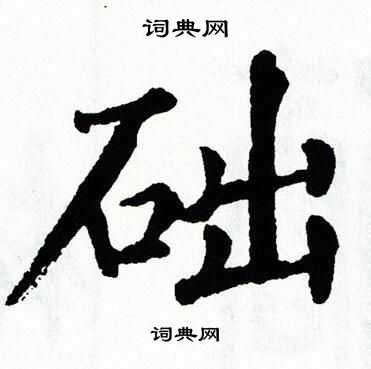 词典网
础
词典网